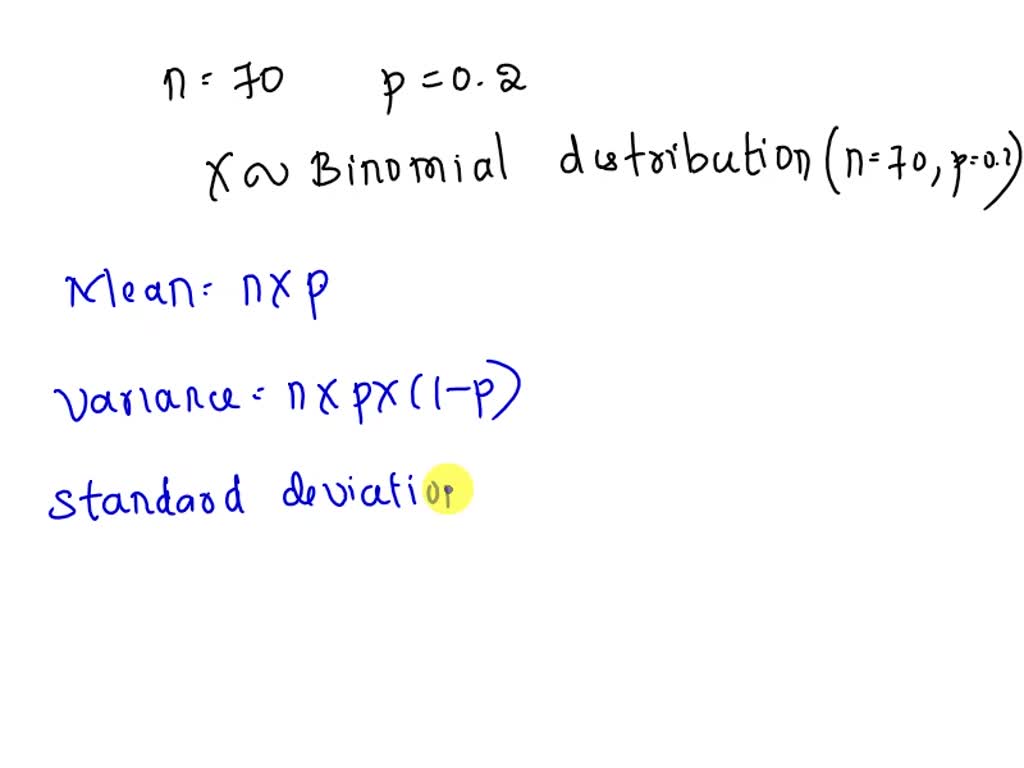 n = 70 p = 0.2
X ~ Binomial distribution (n = 70, p = 0.2)
Mean = n x p
Variance = n x p x (1-p)
standard deviation